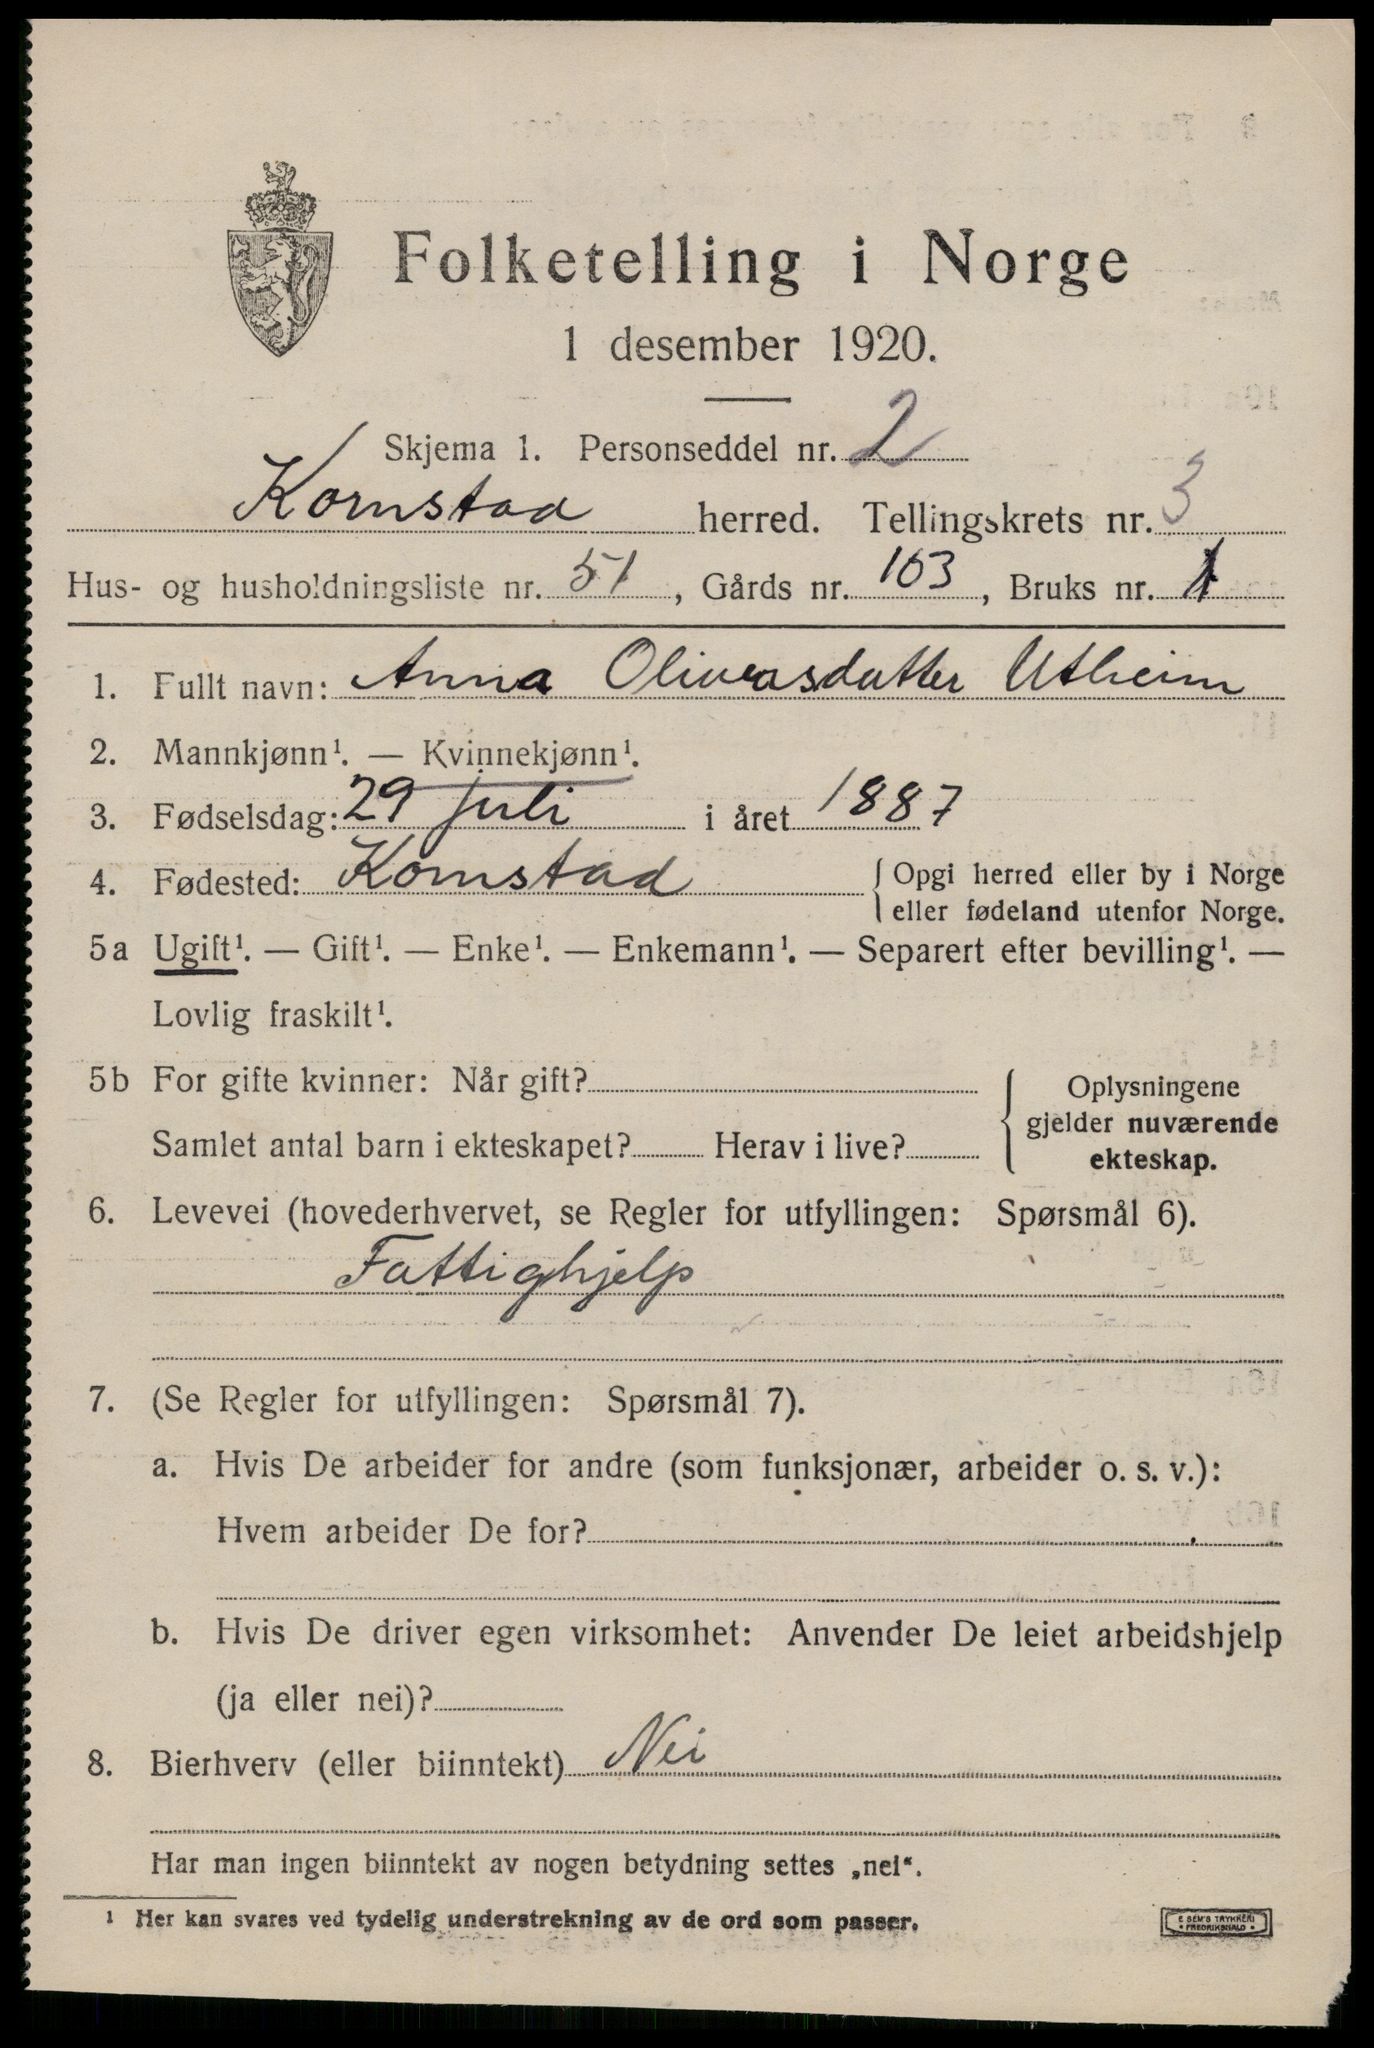 Folketelling i Norge
1 desember 1920.
Skjema 1. Personseddel nr. 2
Kornstad herred. Tellingskrets nr. 3
Hus- og husholdningsliste nr. 51, Gårds nr. 103, Bruks nr. 1
1. Fullt navn: Anna Oliverasdatter Utheim
2. Mannkjønn¹. — Kvinnekjønn¹.
3. Fødselsdag: 29 juli i året 1887
4. Fødested: Kornstad { Opgi herred eller by i Norge
eller fødeland utenfor Norge.
5a Ugift¹. — Gift¹. — Enke¹. — Enkemann¹. — Separert efter bevilling¹. —
Lovlig fraskilt¹.
5b For gifte kvinner: Når gift? { Oplysningene
gjelder nuværende
Samlet antal barn i ekteskapet? Herav i live? ekteskap.
6. Levevei (hovederhvervet, se Regler for utfyllingen: Spørsmål 6).
Fattighjelp
7. (Se Regler for utfyllingen: Spørsmål 7).
a. Hvis De arbeider for andre (som funksjonær, arbeider o. s. v.):
Hvem arbeider De for?
b. Hvis De driver egen virksomhet: Anvender De leiet arbeidshjelp
(ja eller nei)?
8. Bierhverv (eller biinntekt) Nei
Har man ingen biinntekt av nogen betydning settes „nei“.
¹ Her kan svares ved tydelig understrekning av de ord som passer.
E SEM'S TRYKKERI
• FREDRIKSHALD •